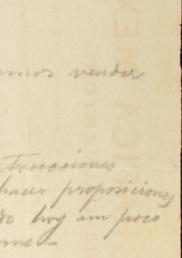 amos vender
trucciones
hacer proposiciones
do hoy un poco